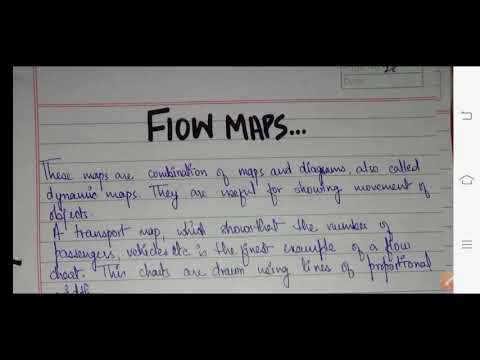 FlOW MAPS...
These maps are combination of maps and diagrams, also called
dynamic maps. They are useful for showing movement of
objects.
A transport map, which shows that the number of
passengers, vehicles etc. is the finest example of a flow
chart. This charts are drawn using lines of proportional